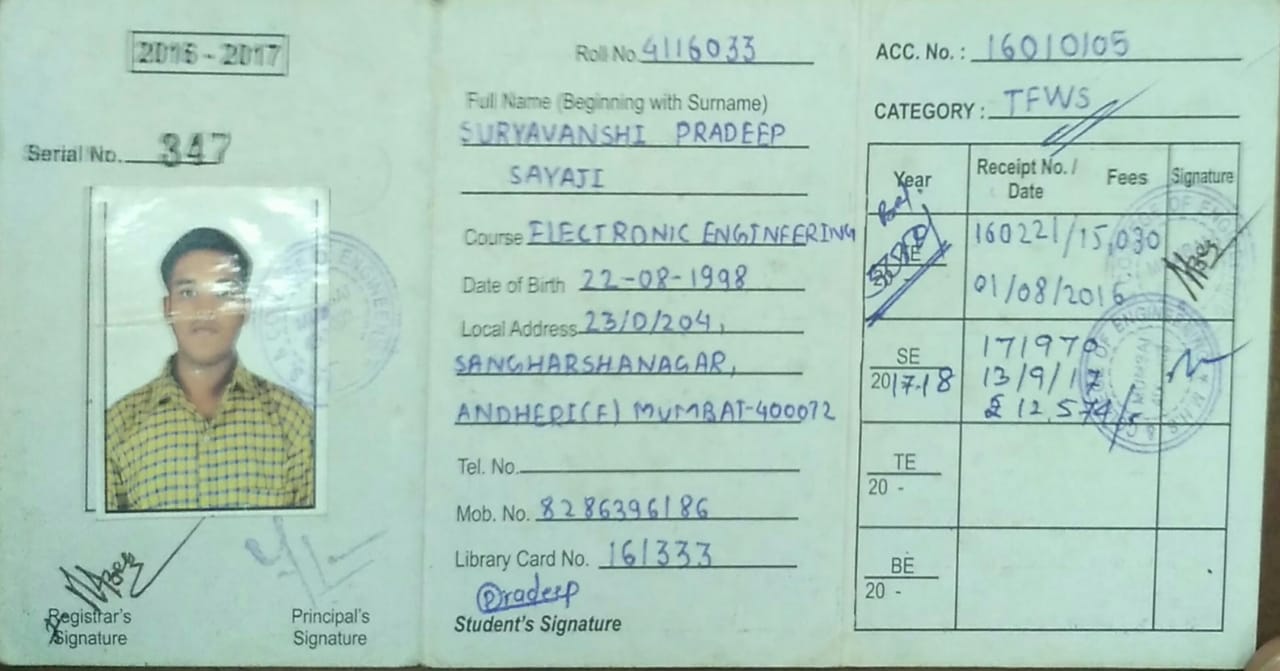 2016 - 2017
Serial No. 347
Registrar's
Signature
Principal's
Signature
Roll No. 4116033
Full Name (Beginning with Surname)
SURYAVANSHI PRADEEP
SAYAJI
Course ELECTRONIC ENGINEERING
Date of Birth 22-08-1998
Local Address 23/D/204,
SANGHARSHANAGAR,
ANDHERI(E) MUMBAI-400072
Tel. No.
Mob. No. 8286396186
Library Card No. 161333
Pradeep
Student's Signature
ACC. No. : 16010105
CATEGORY : TFWS
Year Receipt No. / Date Fees Signature
160221/15,030
01/08/2016
SE 171970
2017-18 13/9/17
12,574/-
TE
20 -
BE
20 -